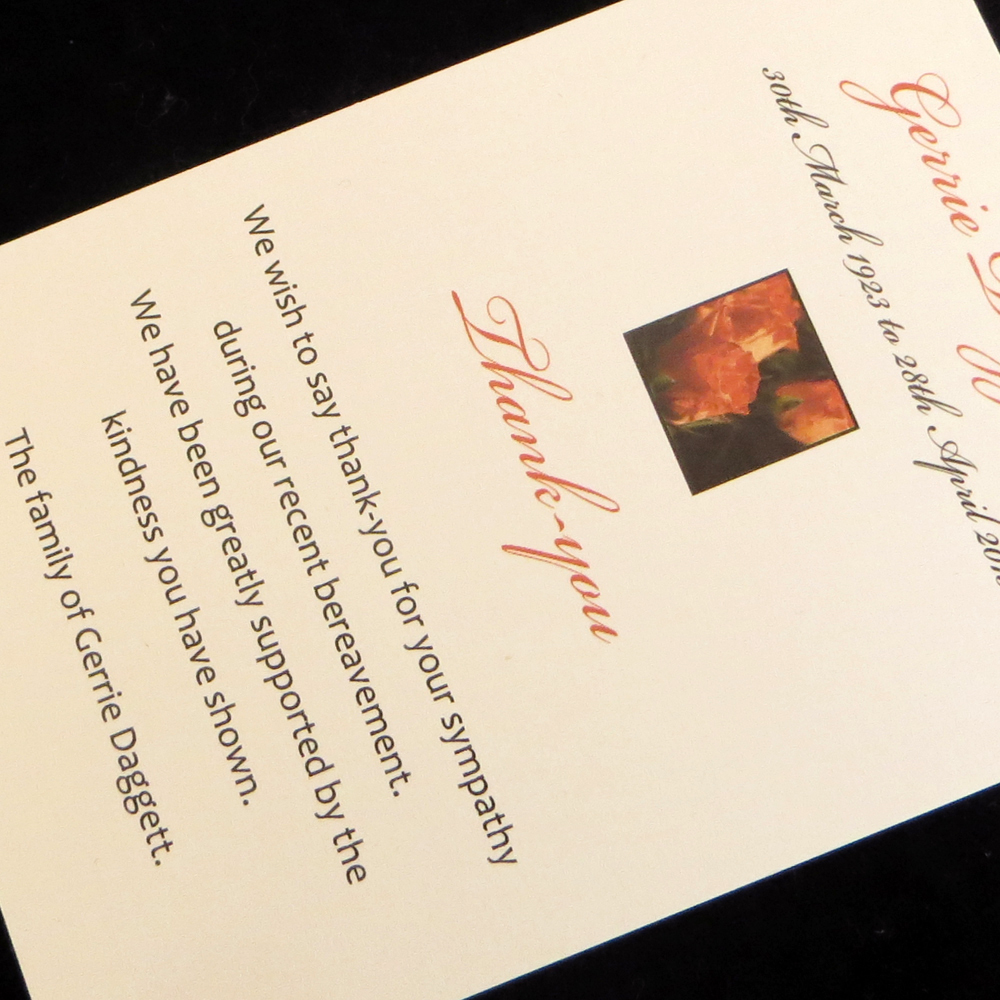 Gerrie
30th March 1923 to 28th April
Thank-you
We wish to say thank-you for your sympathy
during our recent bereavement.
We have been greatly supported by the
kindness you have shown.
The family of Gerrie Daggett.